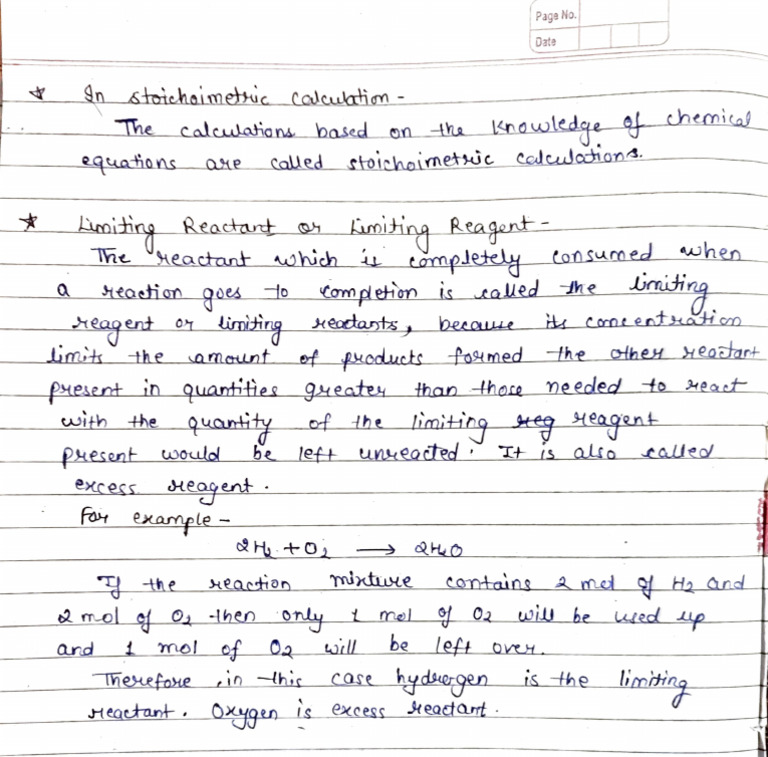 Page No.
Date
☆ In stoichoimetric calculation -
The calculations based on the Knowledge of chemical
equations are called stoichoimetric calculations.
☆ Limiting Reactant or Limiting Reagent -
The reactant which is completely consumed when
a reaction goes to completion is called the limiting
reagent or limiting reactants, because its concentration
limits the amount of products formed the other reactant
present in quantities greater than those needed to react
with the quantity of the limiting reg reagent
present would be left unreacted. It is also called
excess reagent.
For example -
2H2 + O2 → 2H2O
If the reaction mixture contains 2 mol of H2 and
2 mol of O2 then only 1 mol of O2 will be used up
and 1 mol of O2 will be left over.
Therefore, in this case hydrogen is the limiting
reactant. Oxygen is excess reactant.